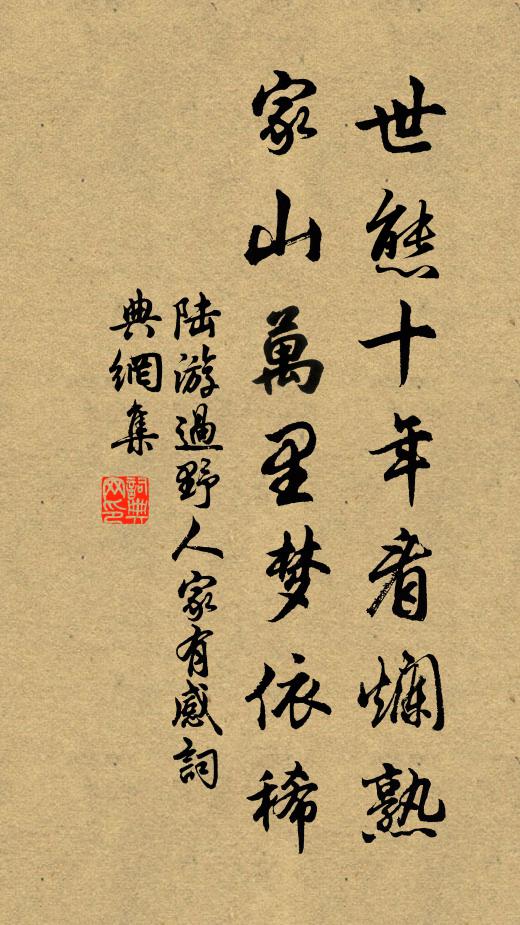 世態十年看爛熟
家山萬里梦依稀
陆游過野人家有感詞
典網集
詞典
网印